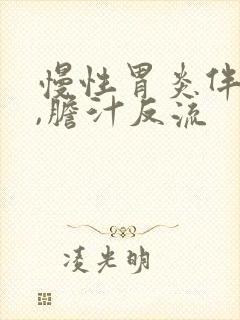 慢性胃炎伴
,胆汁反流
凌光明